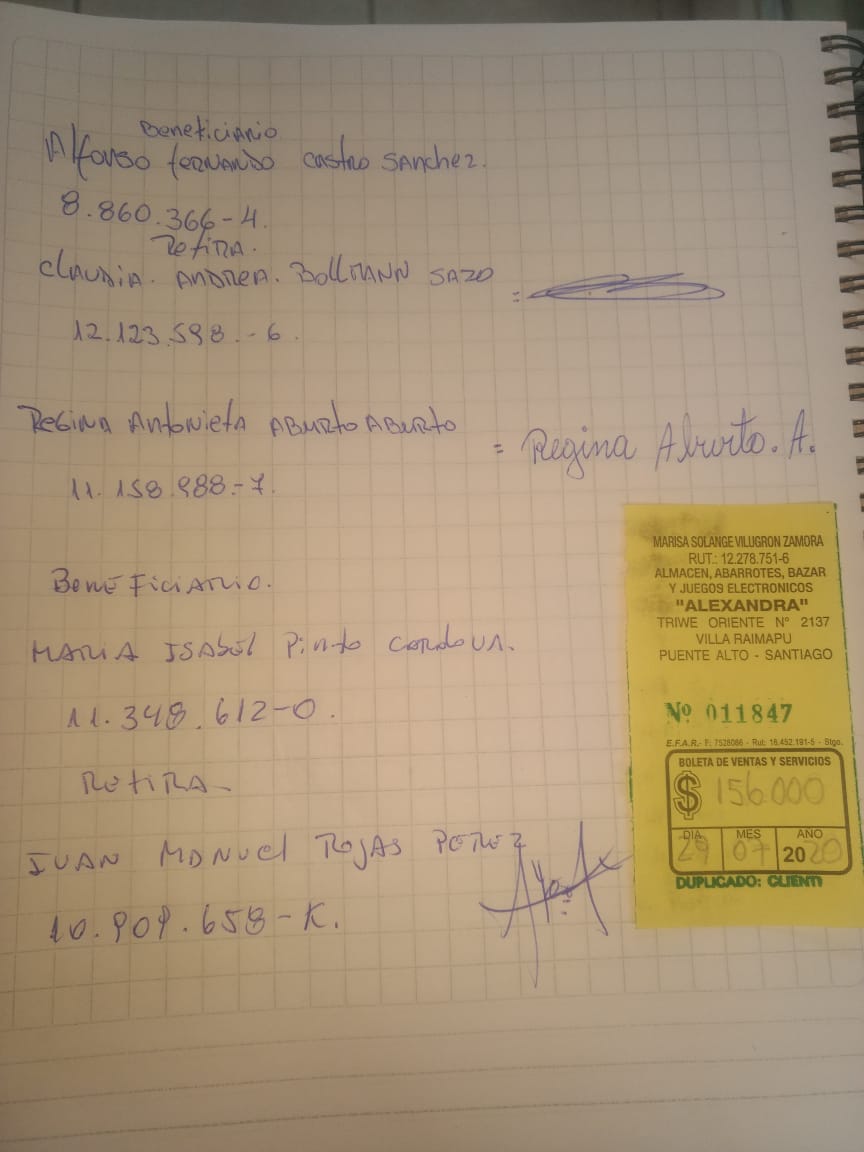 Beneficiario
Alfonso Fernando Castro Sanchez.
8.860.366-4.
Retira.
Claudia. Andrea. Bollmann Sazo =
12.123.598.-6.
Regina Antonieta Aburto Aburto = Regina Aburto. A.
11.158.988-7.
Beneficiario.
Maria Isabel Pinto Cordova.
11.348.612-0.
Retira-
Juan Manuel Rojas Perez
10.909.658-K.
MARISA SOLANGE VILUGRON ZAMORA
RUT.: 12.278.751-6
ALMACEN, ABARROTES, BAZAR
Y JUEGOS ELECTRONICOS
"ALEXANDRA"
TRIWE ORIENTE N° 2137
VILLA RAIMAPU
PUENTE ALTO - SANTIAGO
Nº 011847
E.F.A.R.- F: 7528086 - Rut: 16.452.191-5 - Stgo.
BOLETA DE VENTAS Y SERVICIOS
$ 156.000
DIA MES AÑO
29 07 2020
DUPLICADO: CLIENTE